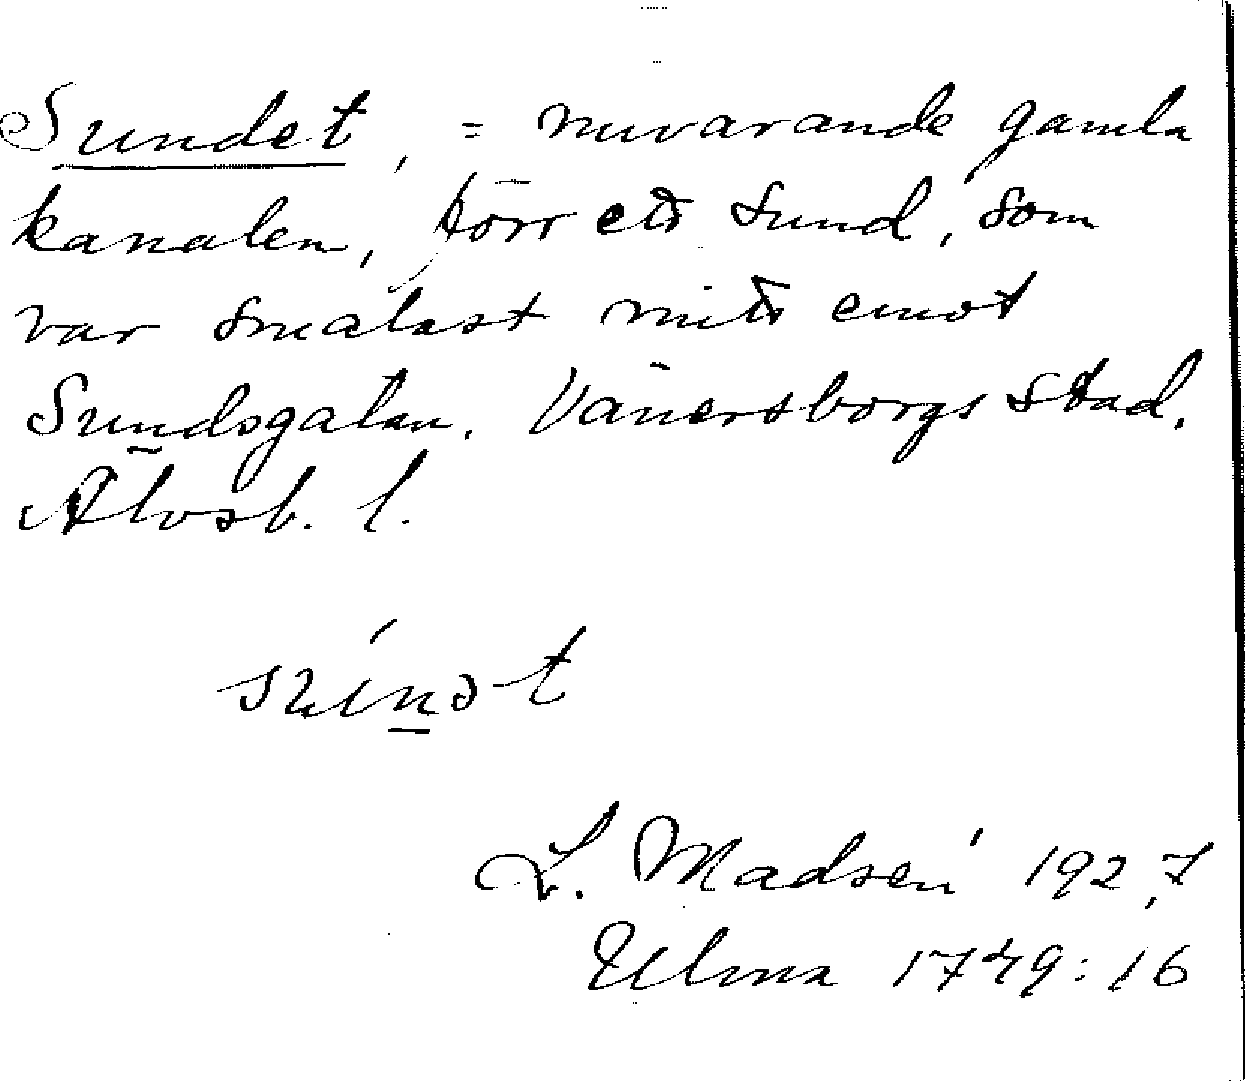 Sundet, = nuvarande gamla
kanalen, förr ett sund, som
var smalast mitt emot
Sundsgatan. Vänersborgs stad.
Älvsb. l.
L. Madsén 1927
Ulma 1749:16